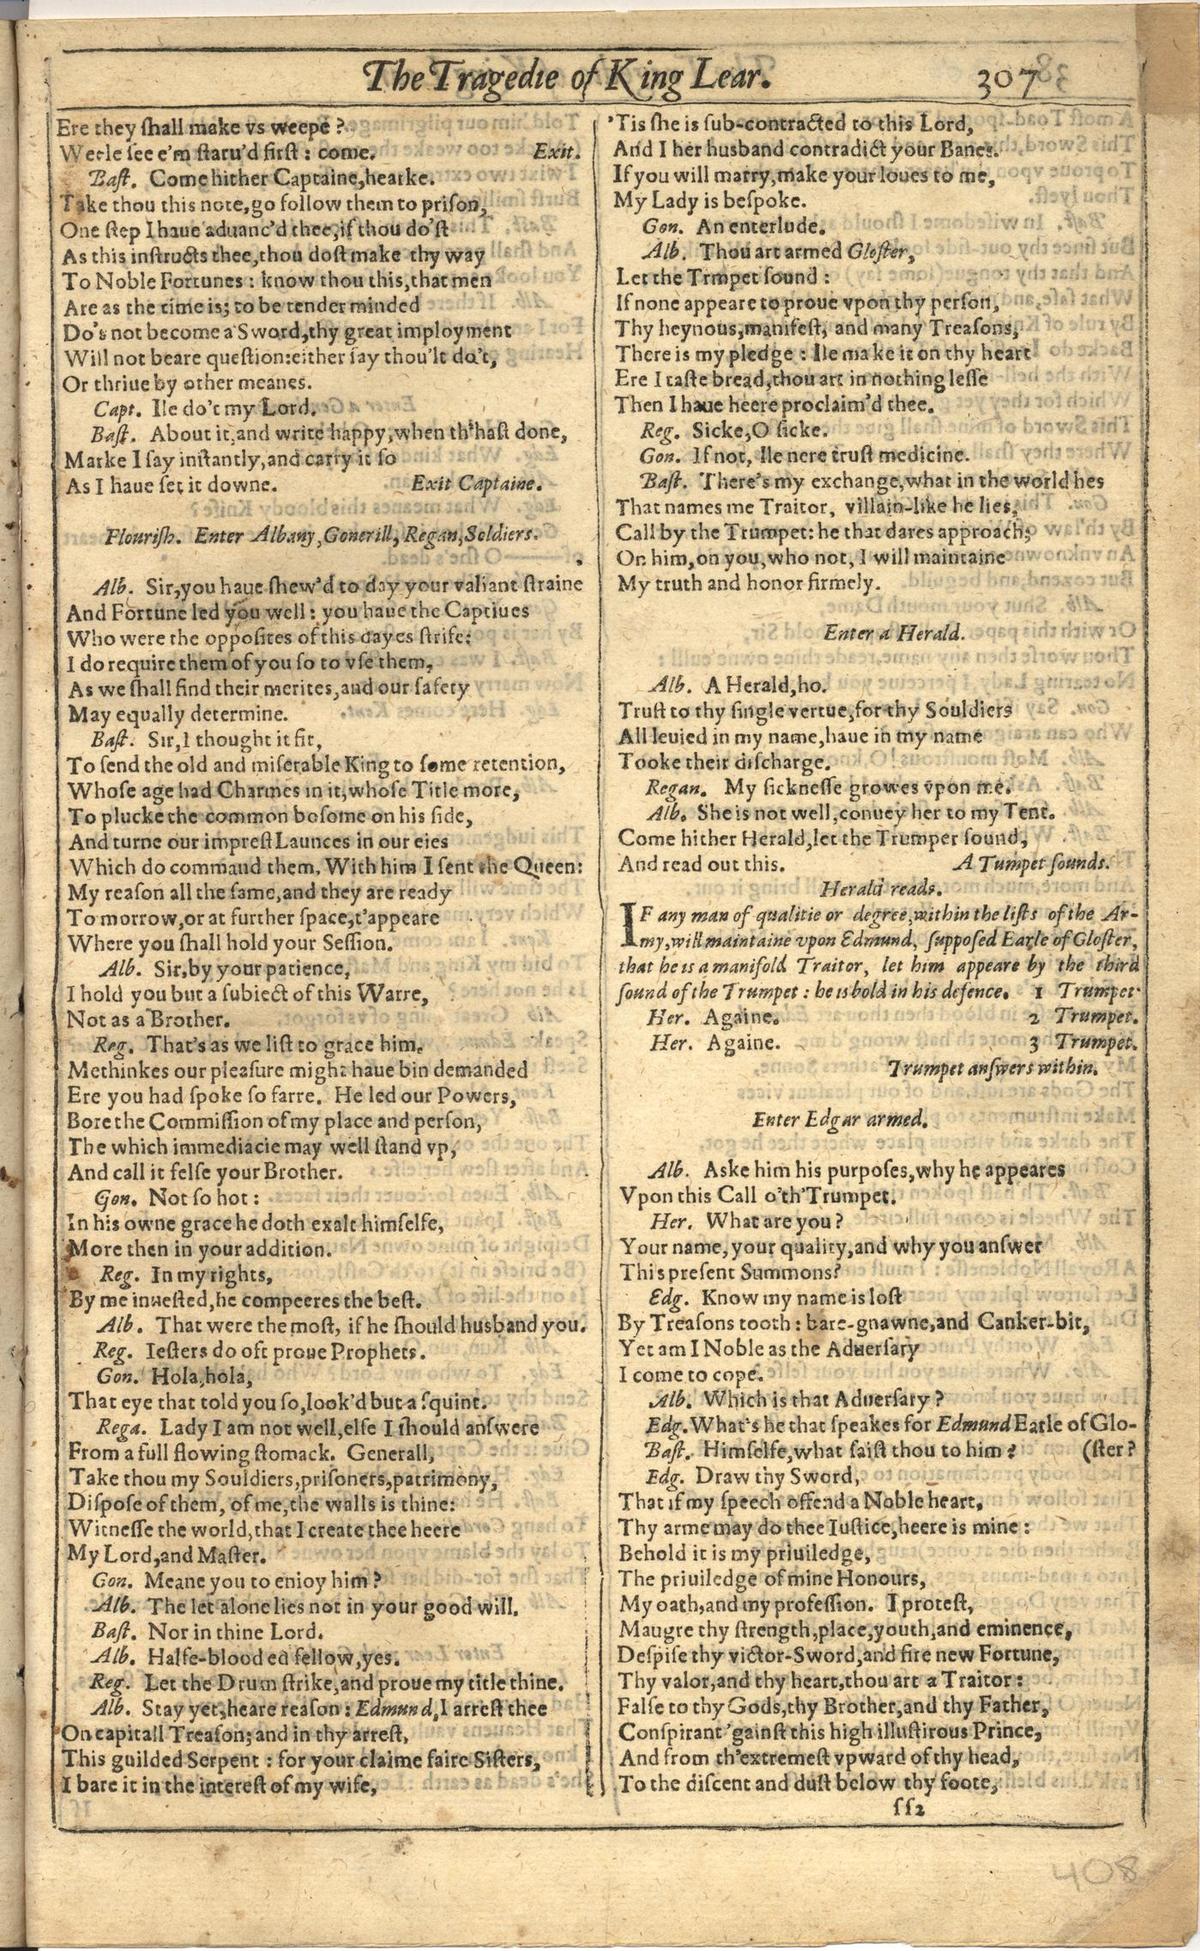 The Tragedie of King Lear. 307
Ere they shall make vs weepe?
Weele see e'm staru'd first: come. Exit.
Bast. Come hither Captaine, hearke.
Take thou this note, go follow them to prison,
One step I haue aduanc'd thee, if thou do'st
As this instructs thee, thou dost make thy way
To Noble Fortunes: know thou this, that men
Are as the time is; to be tender minded
Do's not become a Sword, thy great imployment
Will not beare question: either say thou'lt do't,
Or thriue by other meanes.
Capt. Ile do't my Lord.
Bast. About it, and write happy, when th'hast done,
Marke I say instantly, and carry it so
As I haue set it downe. Exit Captaine.
Flourish. Enter Albany, Gonerill, Regan, Soldiers.
Alb. Sir, you haue shew'd to day your valiant straine
And Fortune led you well: you haue the Captiues
Who were the opposites of this dayes strife:
I do require them of you so to vse them,
As we shall find their merites, and our safety
May equally determine.
Bast. Sir, I thought it fit,
To send the old and miserable King to some retention,
Whose age had Charmes in it, whose Title more,
To plucke the common bosome on his side,
And turne our imprest Launces in our eies
Which do command them. With him I sent the Queen:
My reason all the same, and they are ready
To morrow, or at further space, t'appeare
Where you shall hold your Session.
Alb. Sir, by your patience,
I hold you but a subiect of this Warre,
Not as a Brother.
Reg. That's as we list to grace him.
Methinkes our pleasure might haue bin demanded
Ere you had spoke so farre. He led our Powers,
Bore the Commission of my place and person,
The which immediacie may well stand vp,
And call it selfe your Brother.
Gon. Not so hot:
In his owne grace he doth exalt himselfe,
More then in your addition.
Reg. In my rights,
By me inuested, he compeeres the best.
Alb. That were the most, if he should husband you.
Reg. Iesters do oft proue Prophets.
Gon. Hola, hola,
That eye that told you so, look'd but a squint.
Rega. Lady I am not well, else I should answere
From a full flowing stomack. Generall,
Take thou my Souldiers, prisoners, patrimony,
Dispose of them, of me, the walls is thine:
Witnesse the world, that I create thee heere
My Lord, and Master.
Gon. Meane you to enioy him?
Alb. The let alone lies not in your good will.
Bast. Nor in thine Lord.
Alb. Halfe-blooded fellow, yes.
Reg. Let the Drum strike, and proue my title thine.
Alb. Stay yet, heare reason: Edmund, I arrest thee
On capitall Treason; and in thy arrest,
This guilded Serpent: for your claime faire Sisters,
I bare it in the interest of my wife,
'Tis she is sub-contracted to this Lord,
And I her husband contradict your Banes.
If you will marry, make your loues to me,
My Lady is bespoke.
Gon. An enterlude.
Alb. Thou art armed Gloster,
Let the Trmpet sound:
If none appeare to proue vpon thy person,
Thy heynous, manifest, and many Treasons,
There is my pledge: Ile make it on thy heart
Ere I taste bread, thou art in nothing lesse
Then I haue heere proclaim'd thee.
Reg. Sicke, O sicke.
Gon. If not, Ile nere trust medicine.
Bast. There's my exchange, what in the world hes
That names me Traitor, villain-like he lies,
Call by the Trumpet: he that dares approach;
On him, on you, who not, I will maintaine
My truth and honor firmely.
Enter a Herald.
Alb. A Herald, ho.
Trust to thy single vertue, for thy Souldiers
All leuied in my name, haue in my name
Tooke their discharge.
Regan. My sicknesse growes vpon me.
Alb. She is not well, conuey her to my Tent.
Come hither Herald, let the Trumper sound,
And read out this. A Tumpet sounds.
Herald reads.
IF any man of qualitie or degree, within the lists of the Ar-
my, will maintaine vpon Edmund, supposed Earle of Gloster,
that he is a manifold Traitor, let him appeare by the third
sound of the Trumpet: he is bold in his defence. 1 Trumpet.
Her. Againe. 2 Trumpet.
Her. Againe. 3 Trumpet.
Trumpet answers within.
Enter Edgar armed.
Alb. Aske him his purposes, why he appeares
Vpon this Call o'th'Trumpet.
Her. What are you?
Your name, your quality, and why you answer
This present Summons?
Edg. Know my name is lost
By Treasons tooth: bare-gnawne, and Canker-bit,
Yet am I Noble as the Aduersary
I come to cope.
Alb. Which is that Aduersary?
Edg. What's he that speakes for Edmund Earle of Glo-
Bast. Himselfe, what saist thou to him? (ster?
Edg. Draw thy Sword,
That if my speech offend a Noble heart,
Thy arme may do thee Iustice, heere is mine:
Behold it is my priuiledge,
The priuiledge of mine Honours,
My oath, and my profession. I protest,
Maugre thy strength, place, youth, and eminence,
Despise thy victor-Sword, and fire new Fortune,
Thy valor, and thy heart, thou art a Traitor:
False to thy Gods, thy Brother, and thy Father,
Conspirant 'gainst this high illustirous Prince,
And from th'extremest vpward of thy head,
To the discent and dust below thy foote,
ss2
408